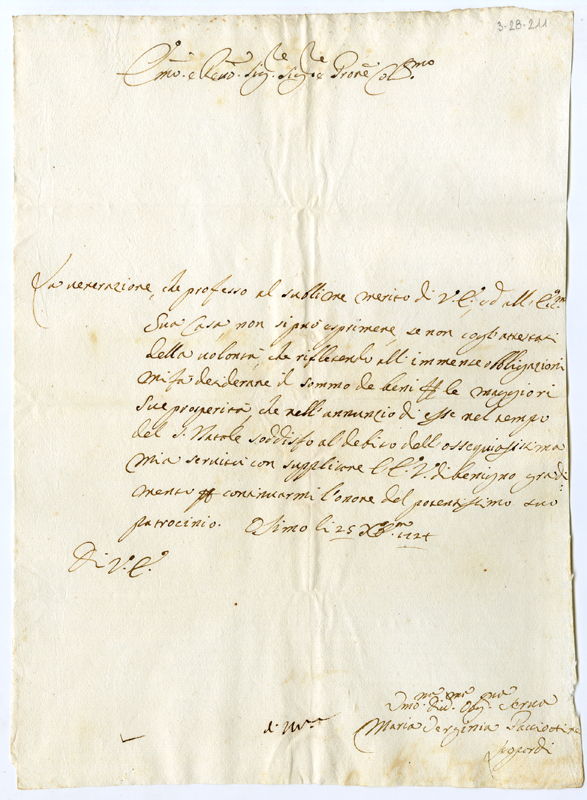 3-28-211
Em̃o. e Reũo. Sig.re Sig.re e Pron̄e Col.mo
La venerazione, che professo al sublime merito di V.E. ed all'Ecc.ma
Sua Casa, non si può esprimere, se non cogl'attestati
della volontà, che riflettendo all'immense obbligazioni
mi fà desiderare il sommo de beni ꝑ le maggiori
sue prosperità, che nell'annuncio di esse nel tempo
del S. Natale soddisfo al debito dell'ossequiosissima
mia servitù con supplicare l'E.V. di benigno gradi:
mento ꝑ continuarmi l'onore del potentissimo suo
patrocinio. Osimo li 25 Xbre 1724
Di V.E.
Um̃o. Div.mo Obg.mo Serva
Maria Verginia